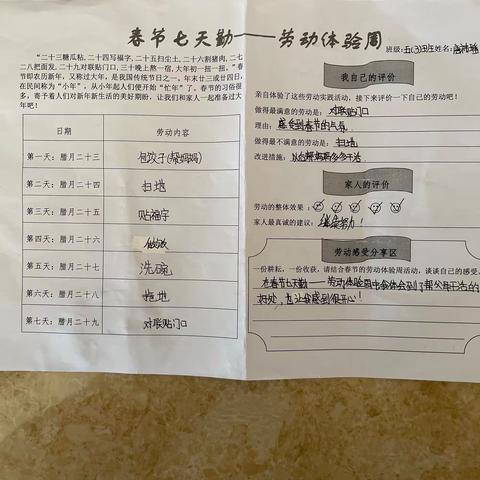 春节七天勤——劳动体验周
班级:五(3)班 姓名:
"二十三糖瓜粘,二十四写福字,二十五扫尘土,二十六割猪肉,二七
二八把面发,二十九对联贴门口,三十晚上熬一宿,大年初一扭一扭。"春
节即农历新年,又称过大年,是我国传统节日之一。年末廿三或廿四日,
在民间称为"小年",从小年起人们便开始"忙年"了。春节的习俗很
多,寄予着人们对新年新生活的美好期盼,让我们和家人一起准备过大
年吧!
日期 劳动内容
第一天:腊月二十三 包饺子(帮妈妈)
第二天:腊月二十四 扫地
第三天:腊月二十五 贴福字
第四天:腊月二十六 做饭
第五天:腊月二十七 洗碗
第六天:腊月二十八 拖地
第七天:腊月二十九 对联贴门口
我自己的评价
亲自体验了这些劳动实践活动,接下来评价一下自己的劳动吧!
做得最满意的劳动是: 对联贴门口
理由: 感受到春节的气氛
做得最不满意的劳动是: 扫地
改进措施: 以后帮妈妈多多干活
家人的评价
劳动的整体效果:
家人最真诚的建议: 继续努力!
劳动感受分享区
一份耕耘,一份收获,请结合春节的劳动体验周活动,谈谈自己的感受。
在春节七天勤——劳动体验周中我体会到了帮父母干活的
好处,也让我感到很开心!